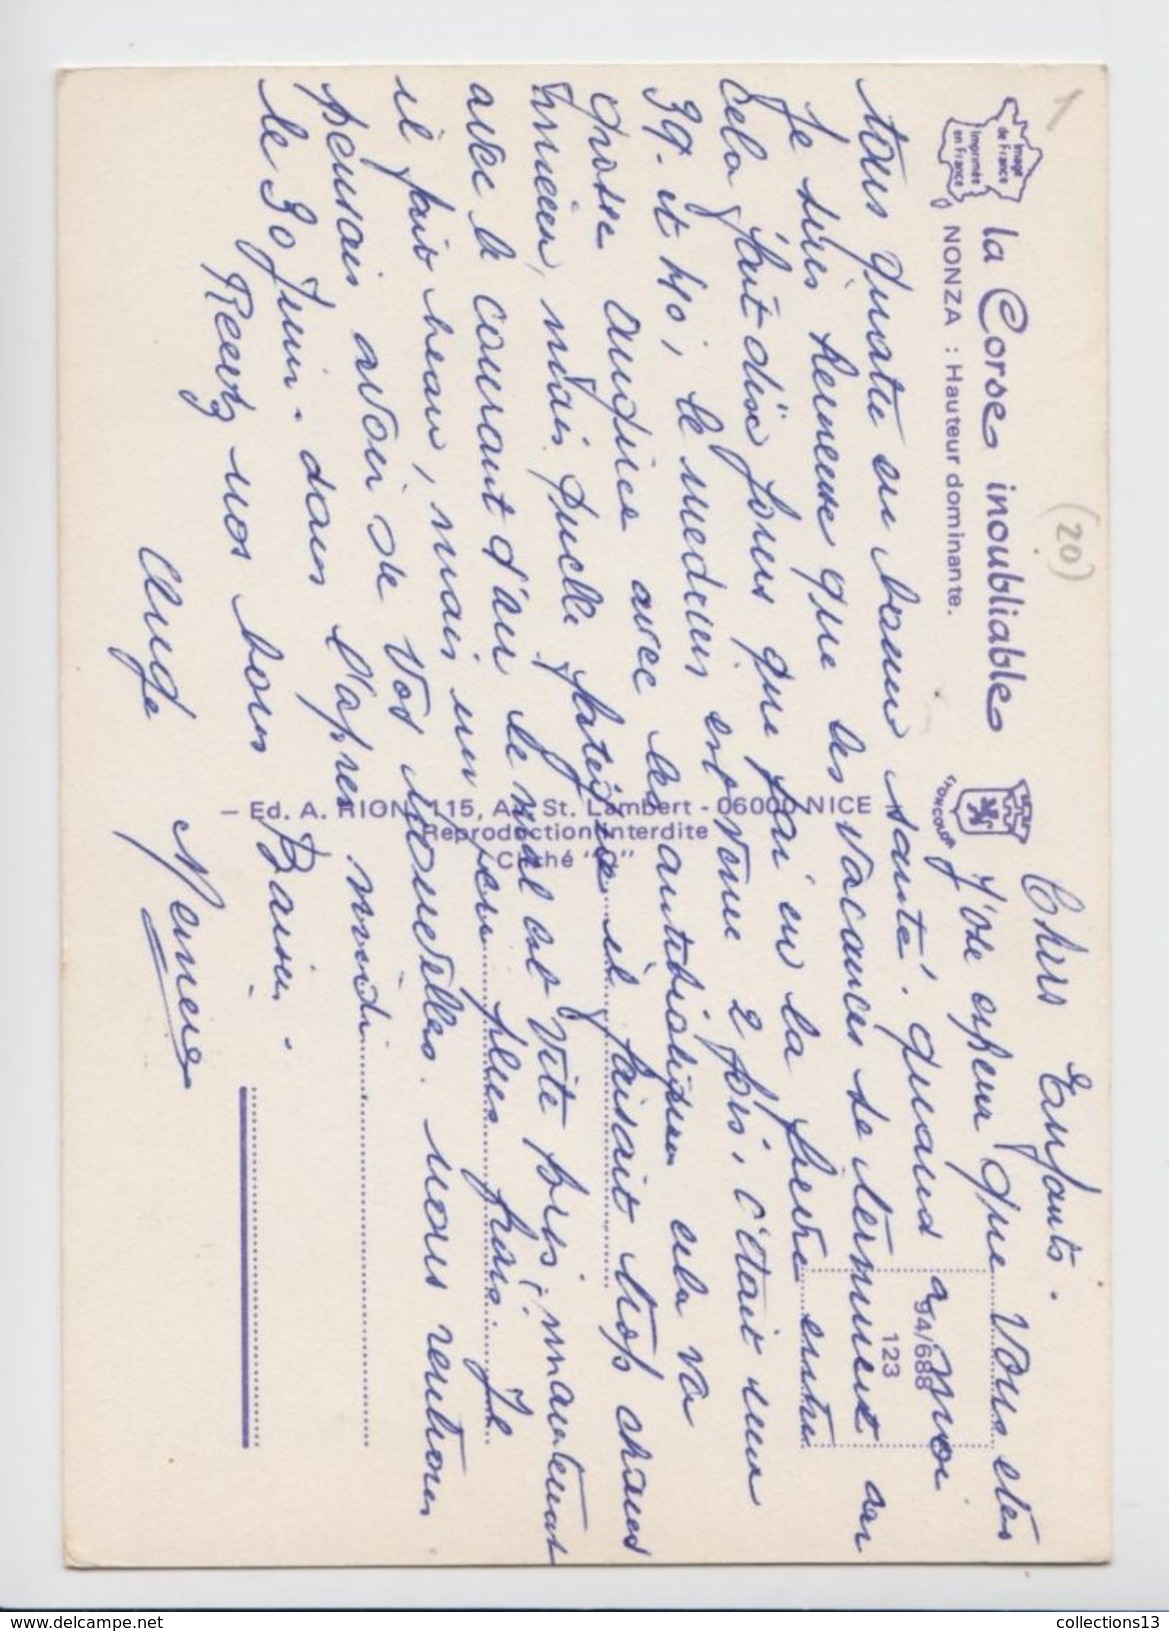 la Corse inoubliable
NONZA : Hauteur dominante.
Image
de France
Imprimée
en France
LYONCOLOR
1
(20)
94/688
123
Chers Enfants.
J'ose espeur que Vous etes
tous quatre en bonne santé. quand a moi
Je suis heureuse que les vacances se terminent car
Cela fait dix jours que j'ai eu la fievre entre
39. et 40, le medecin est venu 2 fois, c'était une
grosse angine avec les antibiotiques cela va
mieux, mais quelle fatigue il faisait trop chaud
avec le courant d'air le mal est vite pris, maintenant
il fait beau, mais un peu plus frais. Je
pensais avoir de Vos Nouvelles. nous rentrons
le 30 Juin. dans l'apres midi
Recevez nos bons Baisers.
Aude Memee
– Ed. A. RION, 115, Av. St. Lambert - 06000 NICE
Reproduction interdite
Cliché
collections13